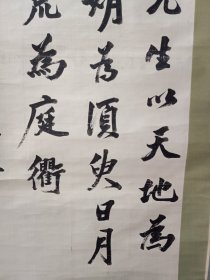 先生以天地為
期為須臾日月
荒為庭衢